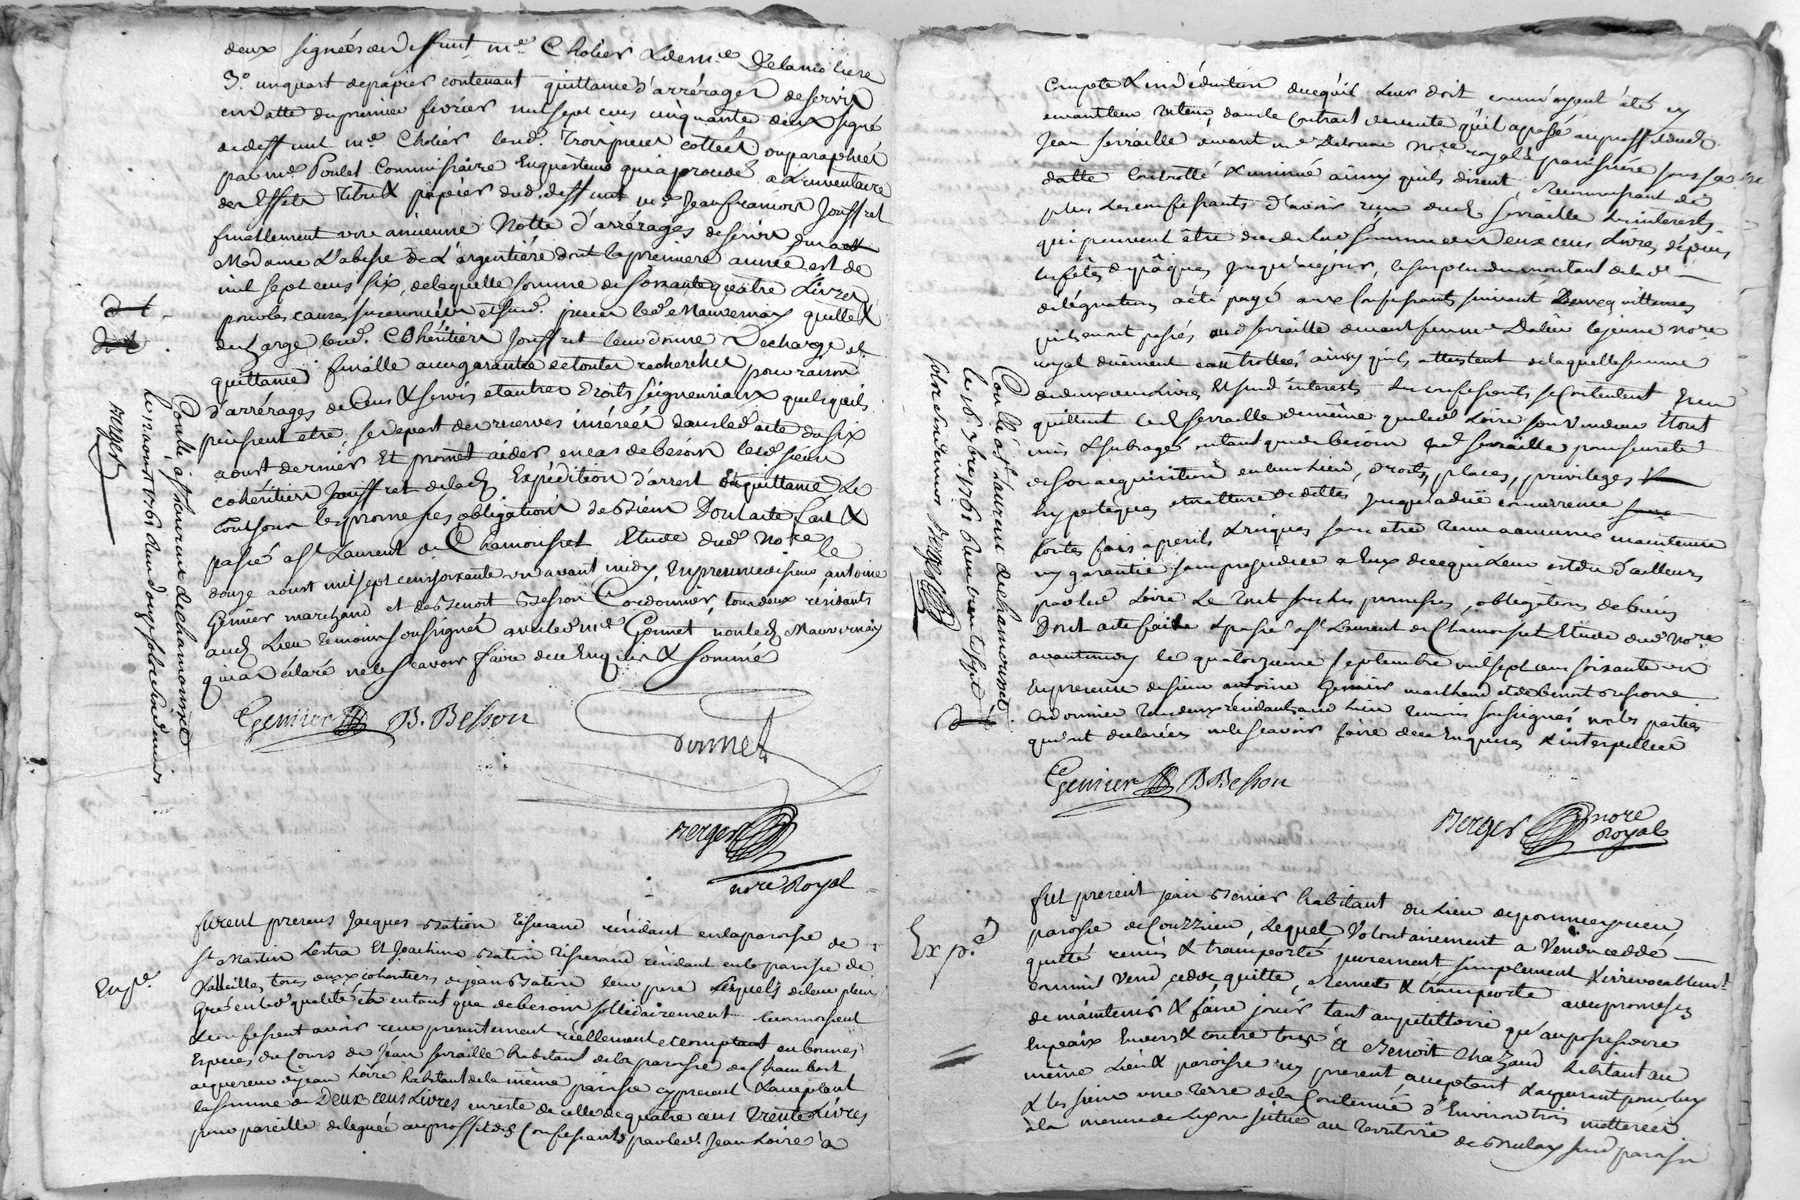 deux signées dud deffunt me Cholier & de mre Delamoliere
3o un quart de papier contenant quittance d'arrérages de servis
en datte du premier fevrier mil sept cens cinquante deux signé
dud deffunt me Cholier lesd. trois pieces cottées ou paraphées
par me Poulet Commissaire Enquesteur qui a procedé a L'inventaire
des Effets titres & papiers dud. deffunt me Jean francois Jouffret
finallement une ancienne Notte d'arrérages de servis dus a
Madame L'abesse de L'argentiére dont la premiere année est de
mil sept cens six, de laquelle somme de soixante quatre Livres
pour les causes susenoncées et susd. pieces led. Mauvernay quitte &
decharge lesd. Cohéritiers Jouffret leur donne Decharge et
quittance finalle avec garantie de toutes recherches pour raison
d'arrérages de Cens & servis et autres droits seigneuriaux quels qu'ils
puissent etre, se depart des reserves insérées dans led acte du six
aoust dernier Et promet aider en cas de besoin lesd sieurs
cohéritiers Jouffret de lad Expédition d'arrest & quittance, Le
tout sous les promesses, obligations de Bien Dont acte fait &
passé a St Laurent de Chamousset Etude dud No.re le
douze aoust mil sept cens soixante un avant midy, En presence de sieur antoine
Genier marchand et de Benoit Besson Cordonnier, tous deux residants
aud. Lieu temoins soussignés avec led me Gonnet non led Mauvernay
qui a déclaré ne le scavoir faire de ce Enquis & sommé
Genier B. Besson
Gonnet
Berger
no.re Royal
Conllé a St Laurent de chamousset
le 12 aoust 1761 Reçu douze sols six deniers
Berger
Exp.é
furent presens Jacques Bation Tisserand résidant en la paroisse de
St Martin Lestra Et Joachim Bation Tisserand résidant en la paroisse de
tous deux cohéritiers de jean Bation leur pere Lesquels de leur plein
Gré en lad qualité et en tant que de besoin sollidairement reconnoissent
& confessent avoir reçu presentement réellement & comptant en bonnes
Especes du Cours de Jean serraille habitant de la paroisse de Chambost
acquereur de jean Loire habitant de la même paroisse cy present & acceptant
la somme de Deux cens Livres en reste de celle de quatre cens Trente Livres
pour pareille deleguée au proffit des Confessants par led. Jean Loire a
Compte & en déduction de ce qu'il leur doit comme ayant été
Jean serraille devant me no.re royal sous sa
datte Controllé & insinué ainsy qu'ils disent, Reconnoissant de
plus Les confessants d'avoir reçu dud serraille Les interests
qui peuvent être dus de lad somme de Deux cens Livres depuis
les fêtes de pâques jusqu'à ce jour, le surplus du montant de lad
délégation a été payé aux Confessants suivant Deux quittances
qu'ils en ont passés aud serraille devant feu me Dalin le jeune no.re
royal duement controllées ainsy qu'ils attestent de laquelle somme
de deux cens Livres Et susd interests Les confessants se Contentent & en
quittent led serraille de même que led Loire son Vendeur & l'ont
mis & subrogé en tant que de besoin led serraille pour sureté
de son acquisition en leur lieu, droits, places, privileges
hypoteques et nature de dettes jusqu'a düe concurrence
portes fois a perils & risques sans etre tenus a aucune maintenue
ny garantie sans prejudice a Eux de ce qui Leur est dû d'ailleurs
par led Loire Le tout sous les promesses, obligations de biens
Dont acte fait & passé a St Laurent de Chamousset Etude dud No.re
avant midy le quatorzieme septembre mil sept cens soixante un
En presence de sieur antoine Genier marchand et de benoit Bessone
cordonnier tous deux residants aud Lieu temoins soussignés non les parties
qui ont declarées ne le scavoir faire de ce Enquises & interpellées
Genier B Besson
Berger no.re Royal
Conllé a St Laurent de chamousset
le 18 7bre 1761 Reçu vingt sept
sols six deniers Berger
Exp.é
fut present jean Bernier habitant du Lieu de pommegneu
paroisse de Couzzieu, Lequel Volontairement a Vendu ceddé
quitté remis & transporté purement simplement & irrevocablemt
comme vend, cedde, quitte, remet & transporte avec promesse
de maintenir & faire jouir tant au petittoire qu'au possessoire
En paix Envers & contre tous A Benoit Chazaud habitant au
même Lieu & paroisse cy present acceptant & acquerant pour luy
& les siens une terre de la Contenue d'Environ trois metterées
a la mesure de Lyon située au Territoire de susd paroisse